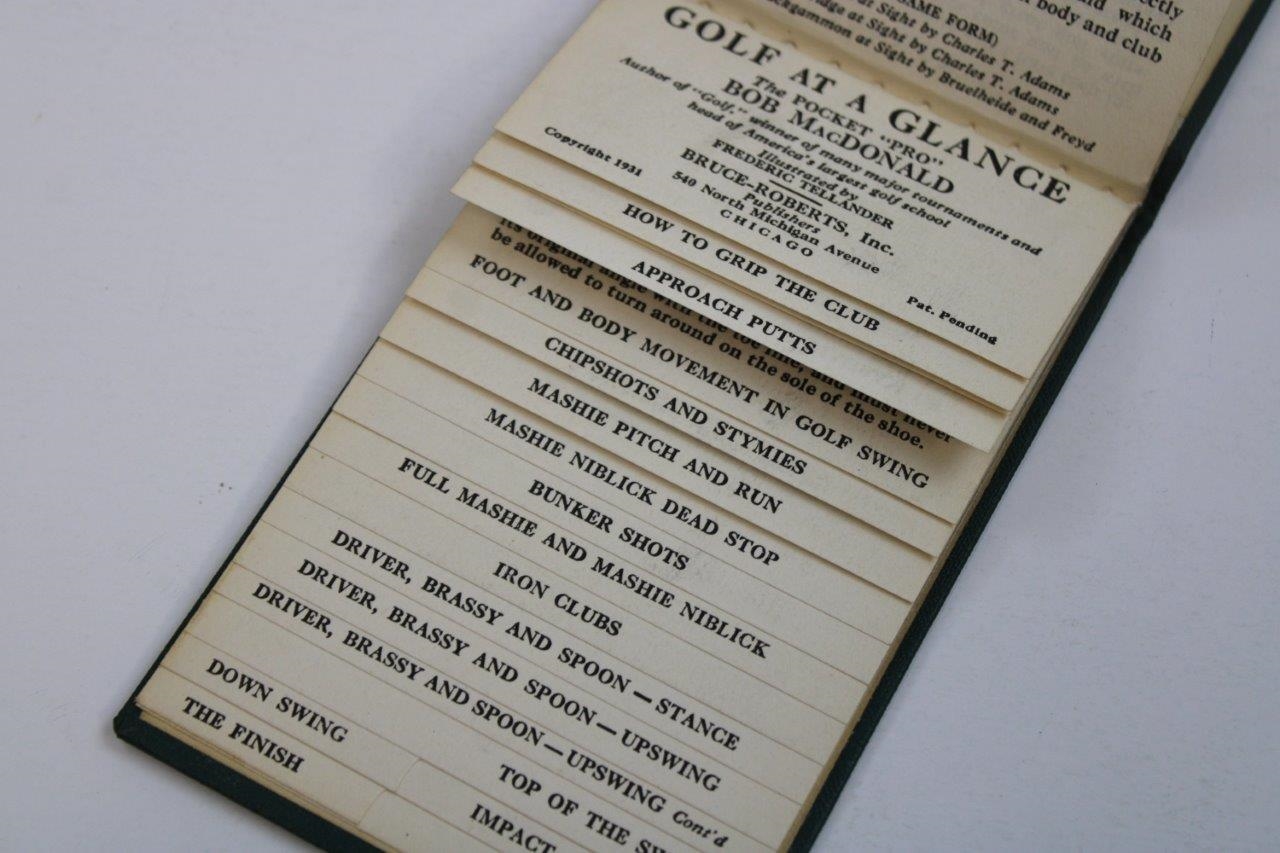 ectly
which
body and club
GAME FORM)
at Sight by Charles T. Adams
at Sight by Charles T. Adams
ckgammon at Sight by Bruelheide and Freyd
GOLF AT A GLANCE
The POCKET "PRO"
BOB MACDONALD
Author of "Golf," winner of many major tournaments and
head of America's largest golf school
Illustrated by
FREDERIC TELLANDER
BRUCE-ROBERTS, Inc.
Publishers
540 North Michigan Avenue
CHICAGO
Copyright 1931
Pat. Pending
HOW TO GRIP THE CLUB
APPROACH PUTTS
its original angle with the toe line, and must never
be allowed to turn around on the sole of the shoe.
FOOT AND BODY MOVEMENT IN GOLF SWING
CHIPSHOTS AND STYMIES
MASHIE PITCH AND RUN
MASHIE NIBLICK DEAD STOP
BUNKER SHOTS
FULL MASHIE AND MASHIE NIBLICK
IRON CLUBS
DRIVER, BRASSY AND SPOON — STANCE
DRIVER, BRASSY AND SPOON — UPSWING
DRIVER, BRASSY AND SPOON — UPSWING Cont'd
TOP OF THE SW
DOWN SWING
IMPACT
THE FINISH